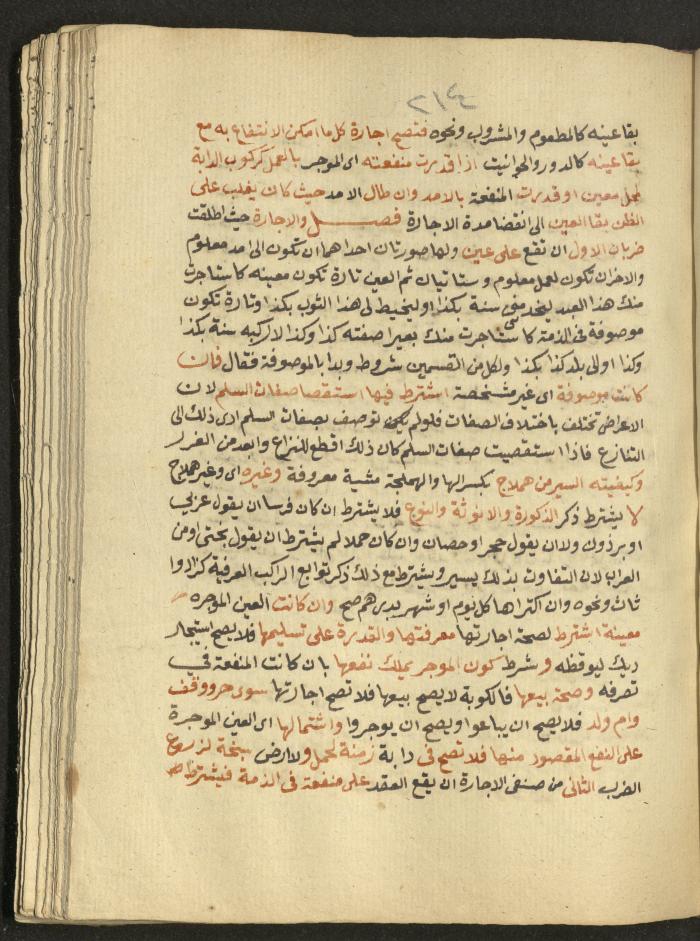 ٢١٤
بقا عينه كالمطعوم والمشروب ونحوه فتصح اجارة كل ما امكن الانتفاع به مع
بقا عينه كالدور والحوانيت اذا قدرت منفعته اى الموجر بالعمل كركوب الدابة
لمحل معين او قدرت المنفعة بالامد وان طال الامد حيث كان يغلب على
الظن بقا العين الى انقضا مدة الاجارة فصل والاجارة حيث اطلقت
ضربان الاول ان تقع على عين ولها صورتان احداهما ان تكون الى امد معلوم
والاخرى ان تكون لعمل معلوم وستاتيان ثم العين تارة تكون معينه كاستاجرت
منك هذا العبد ليخدمنى سنة بكذا او ليخيط لى هذا الثوب بكذا وتارة تكون
موصوفة فى الذمة كاستاجرت منك بعيرا صفته كذا وكذا لاركبه سنة بكذا
وكذا او الى بلد كذا بكذا ولكل من القسمين شروط وبدا بالموصوفة فقال فان
كانت موصوفة اى غير مشخصة اشترط فيها استقصا صفات السلم لان
الاغراض تختلف باختلاف الصفات فلو لم يكن توصف بصفات السلم ادى ذلك الى
التنازع فاذا استقصيت صفات السلم كان ذلك اقطع للنزاع وابعد من الغرر
وكيفيته السير من هملاج بكسر الها والهملجة مشية معروفة وغيره اى وغير هملاج
لا يشترط ذكر الذكورة والانوثة والنوع فلا يشترط ان كان فرسا ان يقول عربى
او برذون ولا ان يقول حجر او حصان وان كان جملا لم يشترط ان يقول بختى او من
العراب لان التفاوت بذلك يسير ويشترط مع ذلك ذكر توابع الراكب العرفية كزاد وا
ثاث ونحوه وان اكتراها كل يوم او شهر بدرهم صح وان كانت العين الموجره
معينة اشترط لصحة اجارتها معرفتها والقدرة على تسليمها فلا يصح استيجار
ديك ليوقظه وشرط كون الموجر يملك نفعها بان كانت المنفعة فى
تصرفه وصحة بيعها فالكوبة لا يصح بيعها فلا تصح اجارتها سوى حر ووقف
وام ولد فلا يصح ان يباعوا ويصح ان يوجروا واشتمالها اى العين الموجرة
على النفع المقصود منها فلا تصح فى دابة زمنة لحمل ولا ارض سبخة لزرع
الضرب الثانى من صنفى الاجارة ان يقع العقد على منفعة فى الذمة فيشترط